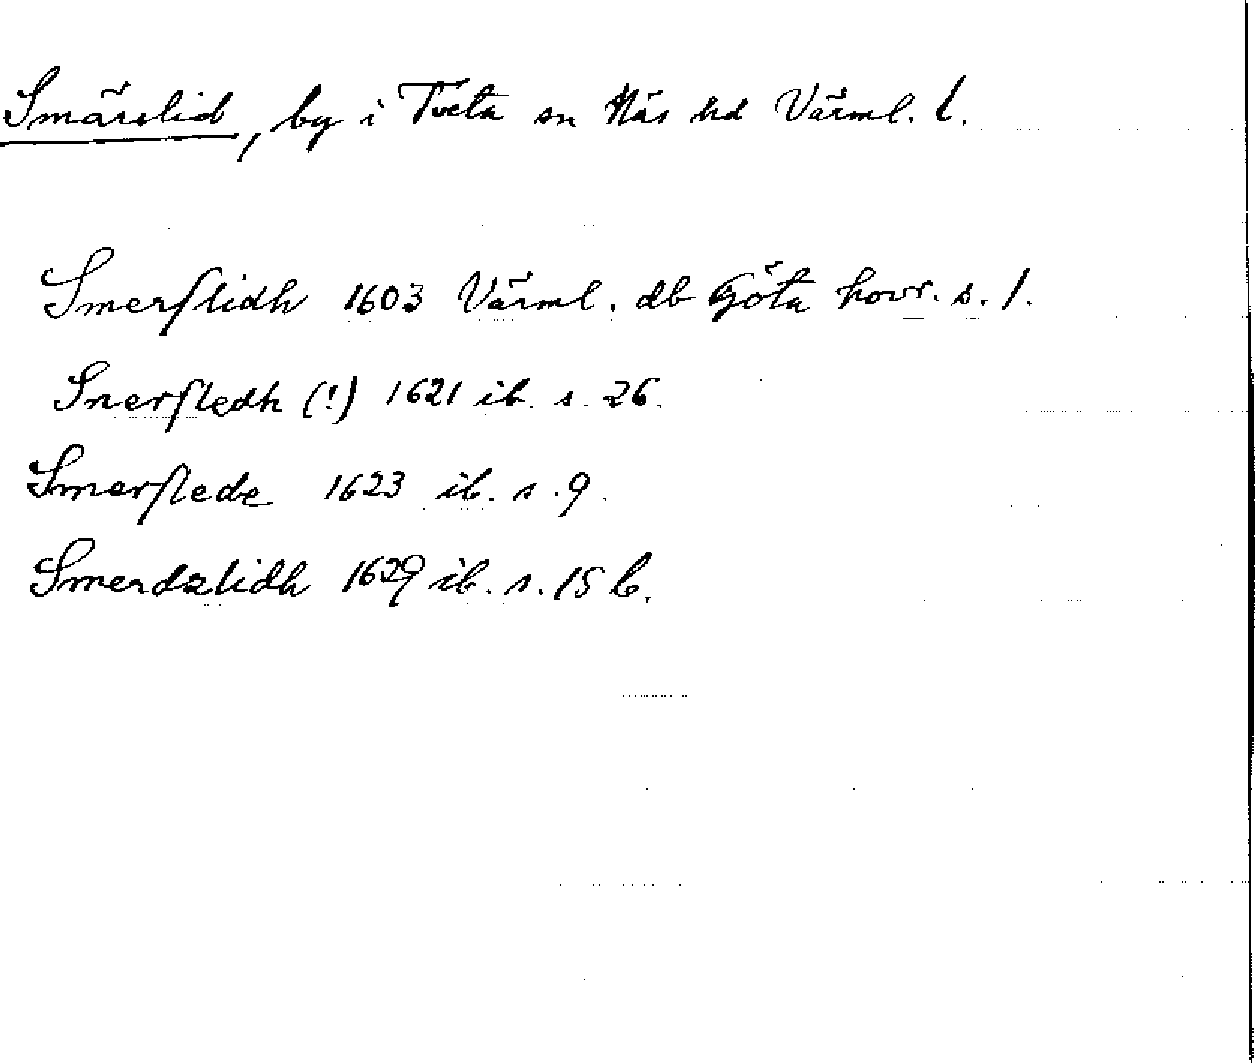 Smärslid, by i Tveta sn Näs hd Värml. l.
Smerslidh 1603 Värml. db Göta hovr. s. 1.
Snersledh (!) 1621 ib. s. 26.
Smerslede 1623 ib. s. 9.
Smerdzlidh 1629 ib. s. 15 b.